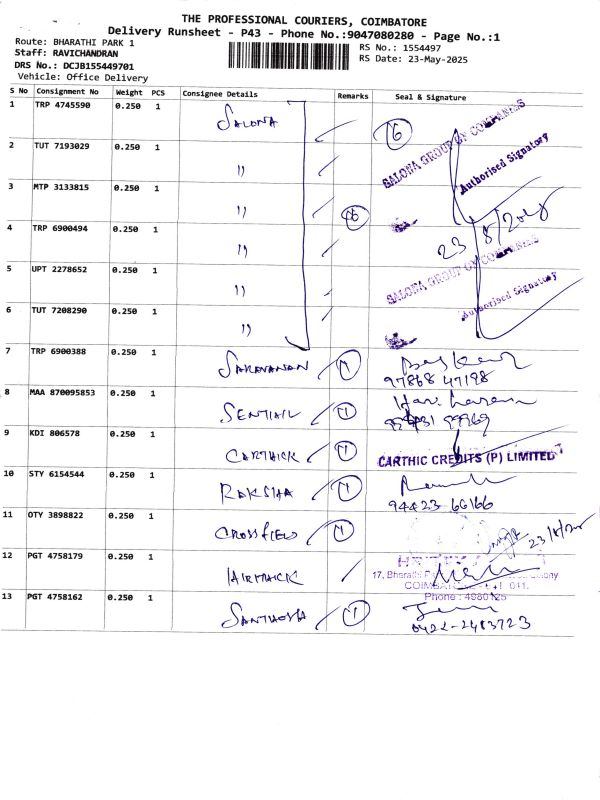 THE PROFESSIONAL COURIERS, COIMBATORE
Delivery Runsheet - P43 - Phone No.:9047080280 - Page No.:1
Route: BHARATHI PARK 1
RS No.: 1554497
Staff: RAVICHANDRAN
RS Date: 23-May-2025
DRS No.: DCJB155449701
Vehicle: Office Delivery
S No Consignment No Weight PCS Consignee Details Remarks Seal & Signature
1 TRP 4745590 0.250 1 SALONA 6
SALONA GROUP OF COMPANIES
Authorised Signatory
2 TUT 7193029 0.250 1 "
3 MTP 3133815 0.250 1 " 6
4 TRP 6900494 0.250 1 "
23/5/2025
5 UPT 2278652 0.250 1 "
SALONA GROUP OF COMPANIES
Authorised Signatory
6 TUT 7208290 0.250 1 "
7 TRP 6900388 0.250 1 SARAVANAN 1
97868 47198
8 MAA 870095853 0.250 1 SENTHIL 1
9 KDI 806578 0.250 1 CARTHICK 1
CARTHIC CREDITS (P) LIMITED
10 STY 6154544 0.250 1 RAKSHA 1
94423 66166
11 OTY 3898822 0.250 1 CROSSFIELD 1
12 PGT 4758179 0.250 1
17, Bharathi
Phone : 4980125
13 PGT 4758162 0.250 1 SANTHOSH 1
0422-2483723